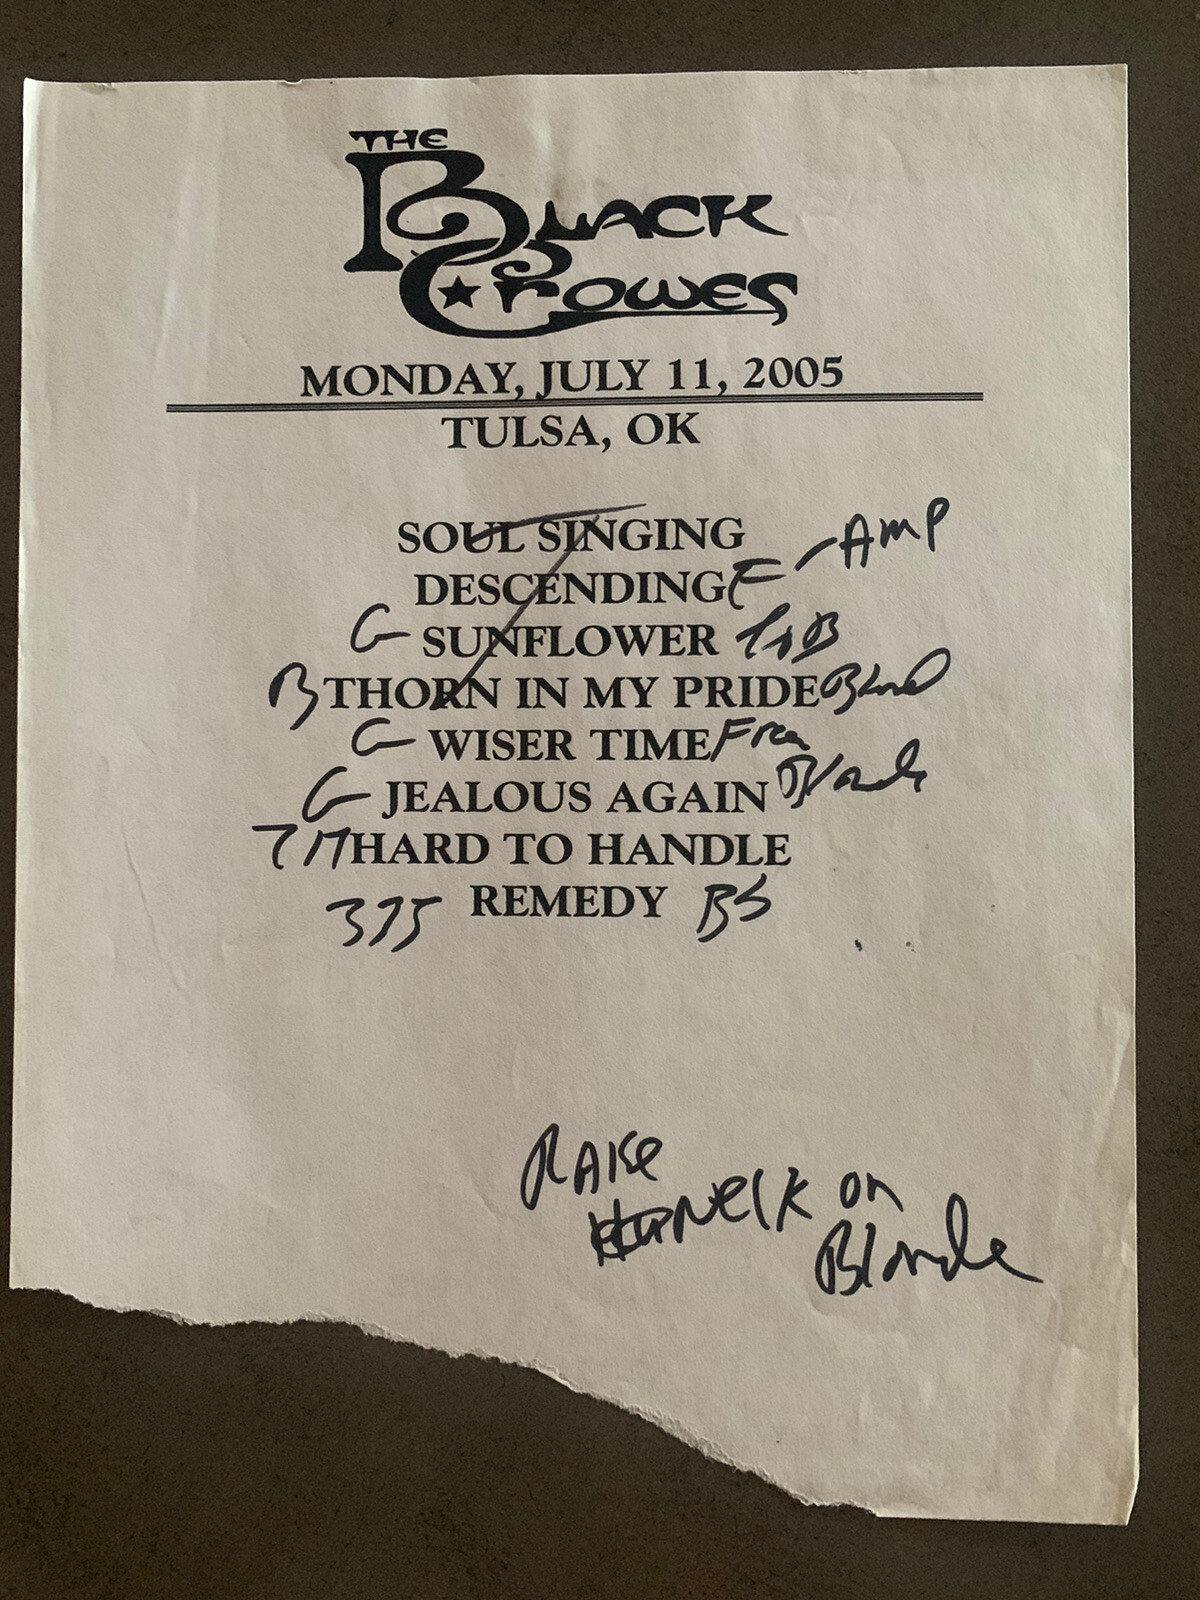 THE
BLACK
CROWES
MONDAY, JULY 11, 2005
TULSA, OK
SOUL SINGING
DESCENDING E - AMP
G SUNFLOWER
B THORN IN MY PRIDE Blond
G WISER TIME
G JEALOUS AGAIN Blonde
HARD TO HANDLE
335 REMEDY BS
RAISE
NeCK on
Blonde